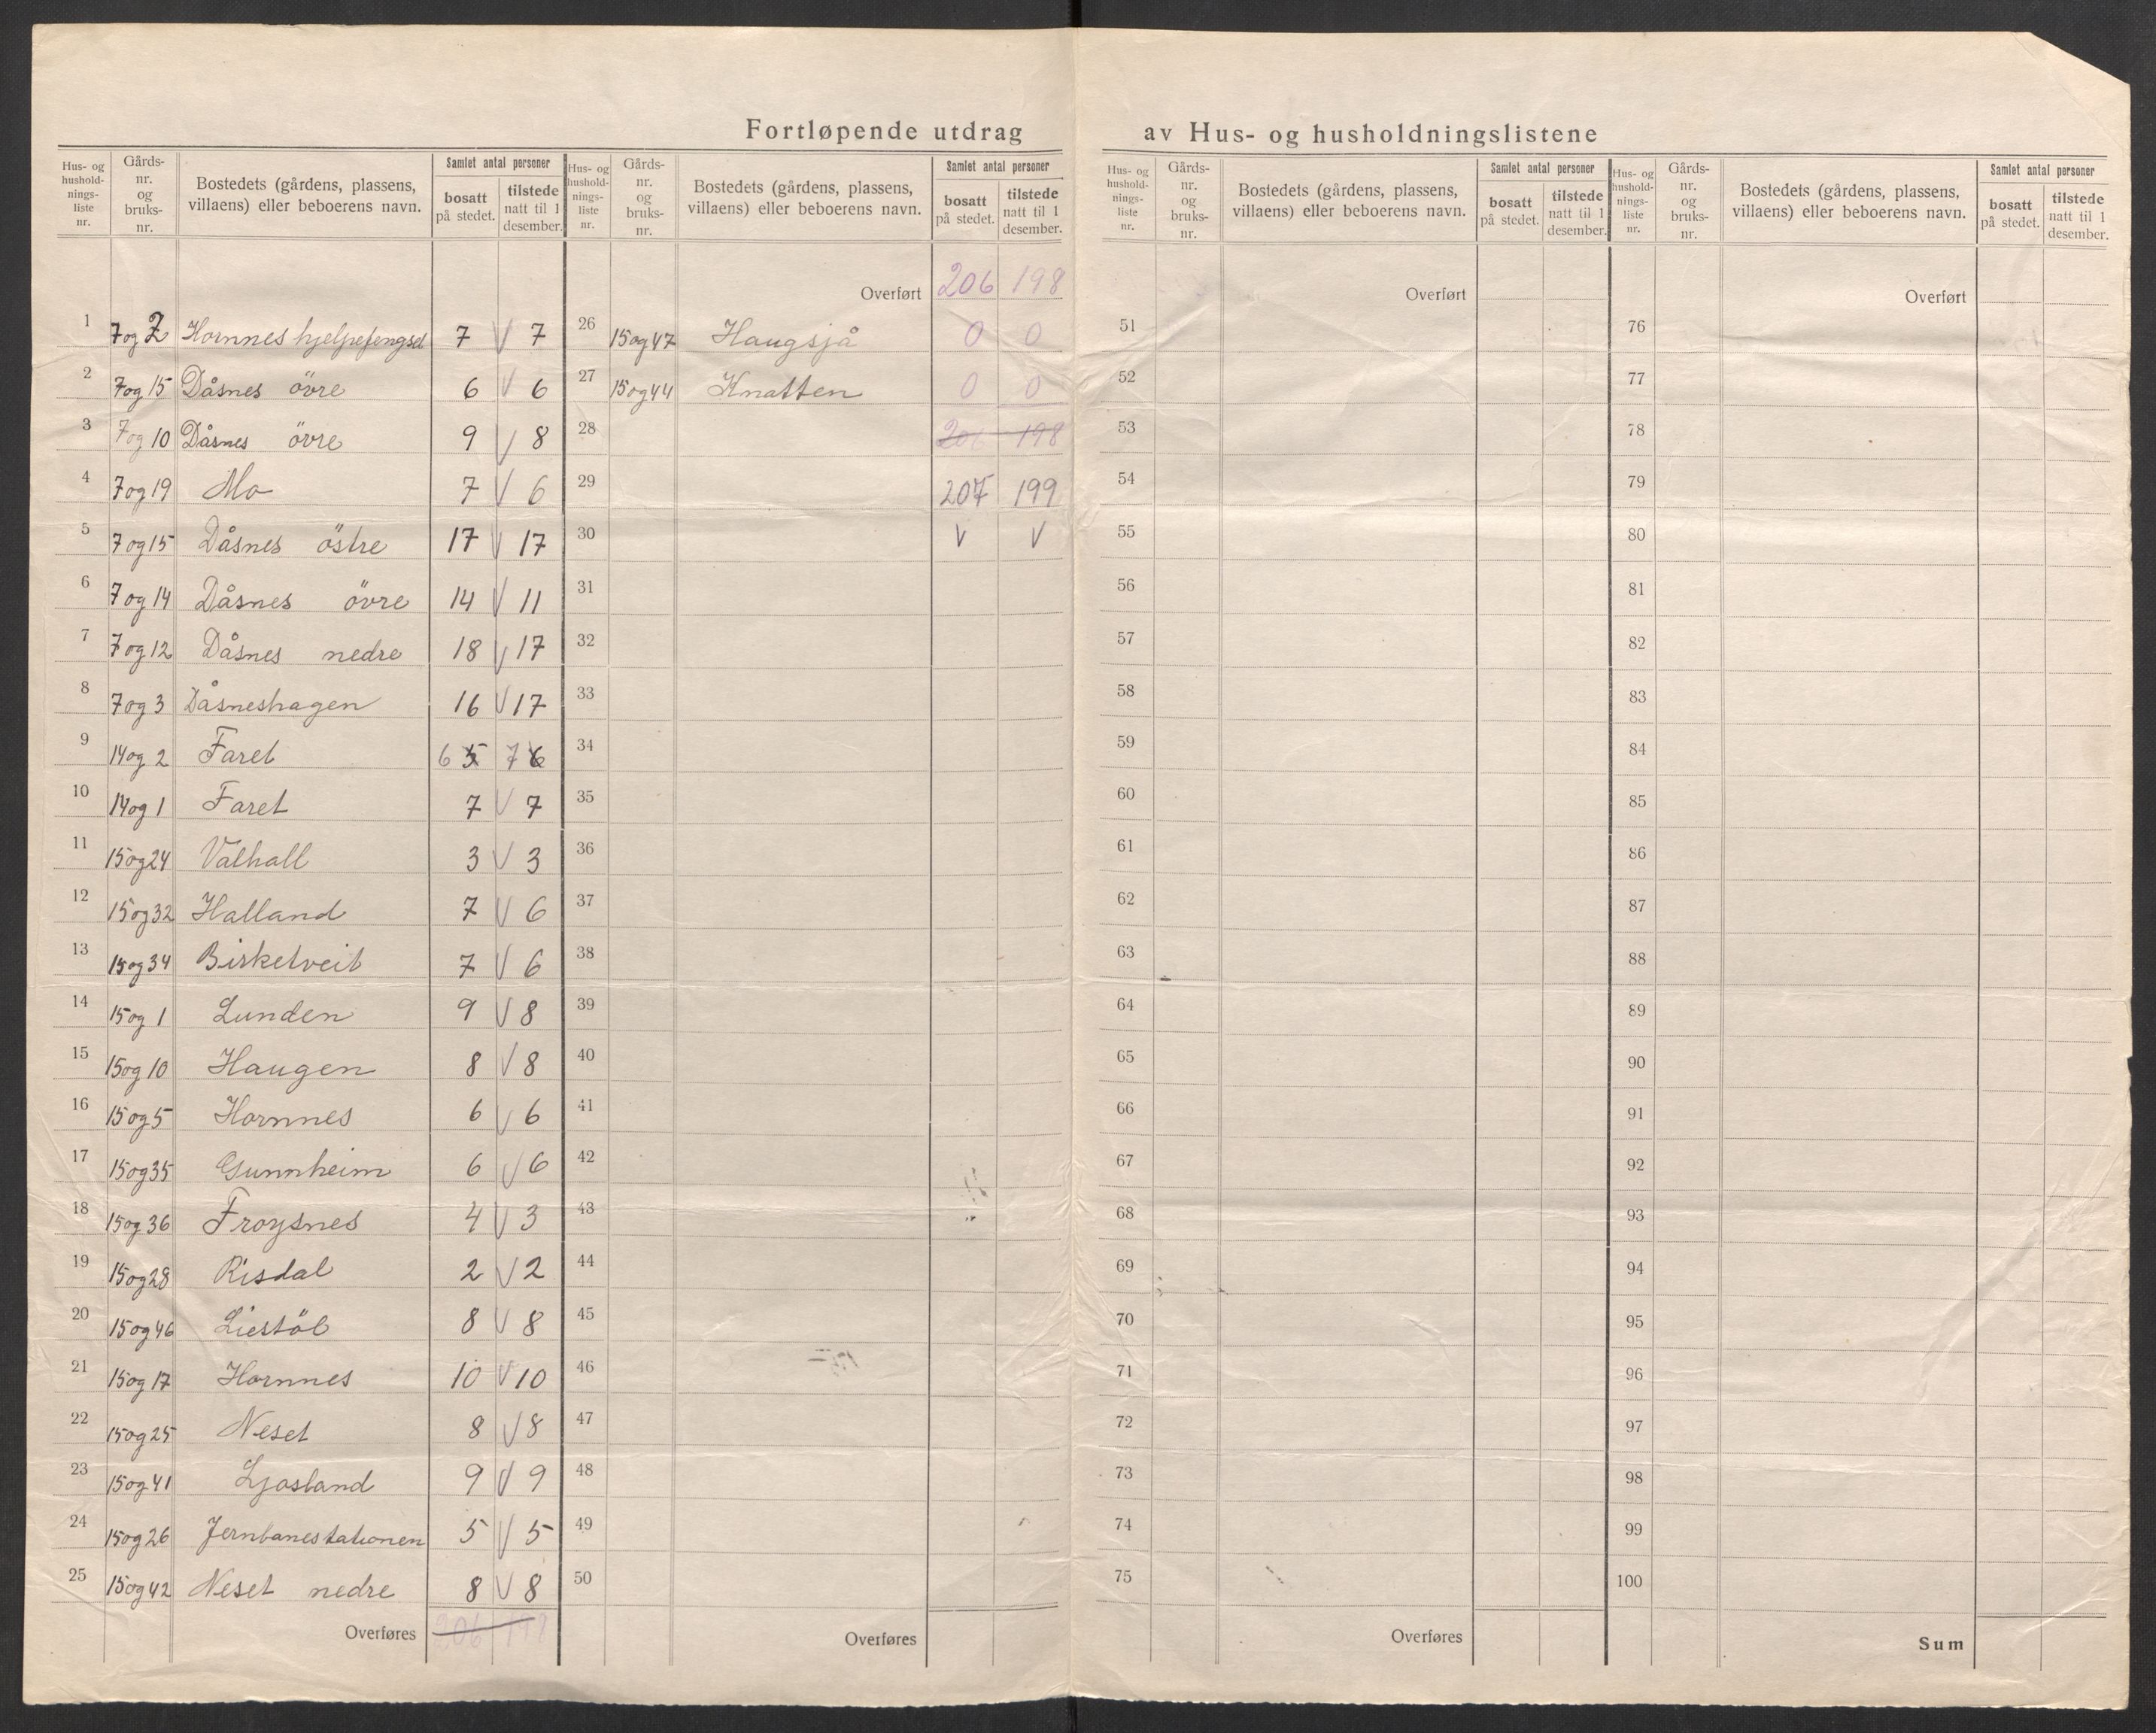 Fortløpende utdrag av Hus- og husholdningslistene
Hus- og hushold- nings- liste nr. Gårds- nr. og bruks- nr. Bostedets (gårdens, plassens, villaens) eller beboerens navn. Samlet antal personer bosatt på stedet. tilstede natt til 1 desember.
Hus- og hushold- nings- liste nr. Gårds- nr. og bruks- nr. Bostedets (gårdens, plassens, villaens) eller beboerens navn. Samlet antal personer bosatt på stedet. tilstede natt til 1 desember.
Hus- og hushold- nings- liste nr. Gårds- nr. og bruks- nr. Bostedets (gårdens, plassens, villaens) eller beboerens navn. Samlet antal personer bosatt på stedet. tilstede natt til 1 desember.
Hus- og hushold- nings- liste nr. Gårds- nr. og bruks- nr. Bostedets (gårdens, plassens, villaens) eller beboerens navn. Samlet antal personer bosatt på stedet. tilstede natt til 1 desember.
Overført 206 198 Overført Overført
1 7og 2 Hornnes hjelpefengsel 7 V 7 26 15og47 Haugsjå 0 0 51 76
2 7og 15 Dåsnes övre 6 V 6 27 15og44 Knatten 0 0 52 77
3 7og 10 Dåsnes övre 9 V 8 28 206 198 53 78
4 7og19 Mo 7 V 6 29 207 199 54 79
5 7og15 Dåsnes östre 17 V 17 30 V V 55 80
6 7og14 Dåsnes övre 14 V 11 31 56 81
7 7og12 Dåsnes nedre 18 V 17 32 57 82
8 7og 3 Dåsneshagen 16 V 17 33 58 83
9 14og 2 Faret 6 5 7 6 34 59 84
10 14og 1 Faret 7 V 7 35 60 85
11 15og24 Valhall 3 V 3 36 61 86
12 15og32 Halland 7 V 6 37 62 87
13 15og34 Birketveit 7 V 6 38 63 88
14 15og 1 Lunden 9 V 8 39 64 89
15 15og 10 Haugen 8 V 8 40 65 90
16 15og5 Hornnes 6 V 6 41 66 91
17 15og35 Gunnheim 6 V 6 42 67 92
18 15og 36 Froysnes 4 V 3 43 68 93
19 15og28 Risdal 2 V 2 44 69 94
20 15og46 Liestöl 8 V 8 45 70 95
21 15og 17 Hornnes 10 V 10 46 71 96
22 15og25 Neset 8 V 8 47 72 97
23 15og41 Ljosland 9 V 9 48 73 98
24 15og26 Jernbanestationen 5 V 5 49 74 99
25 15og42 Neset nedre 8 V 8 50 75 100
Overføres 206 198 Overføres Overføres Sum